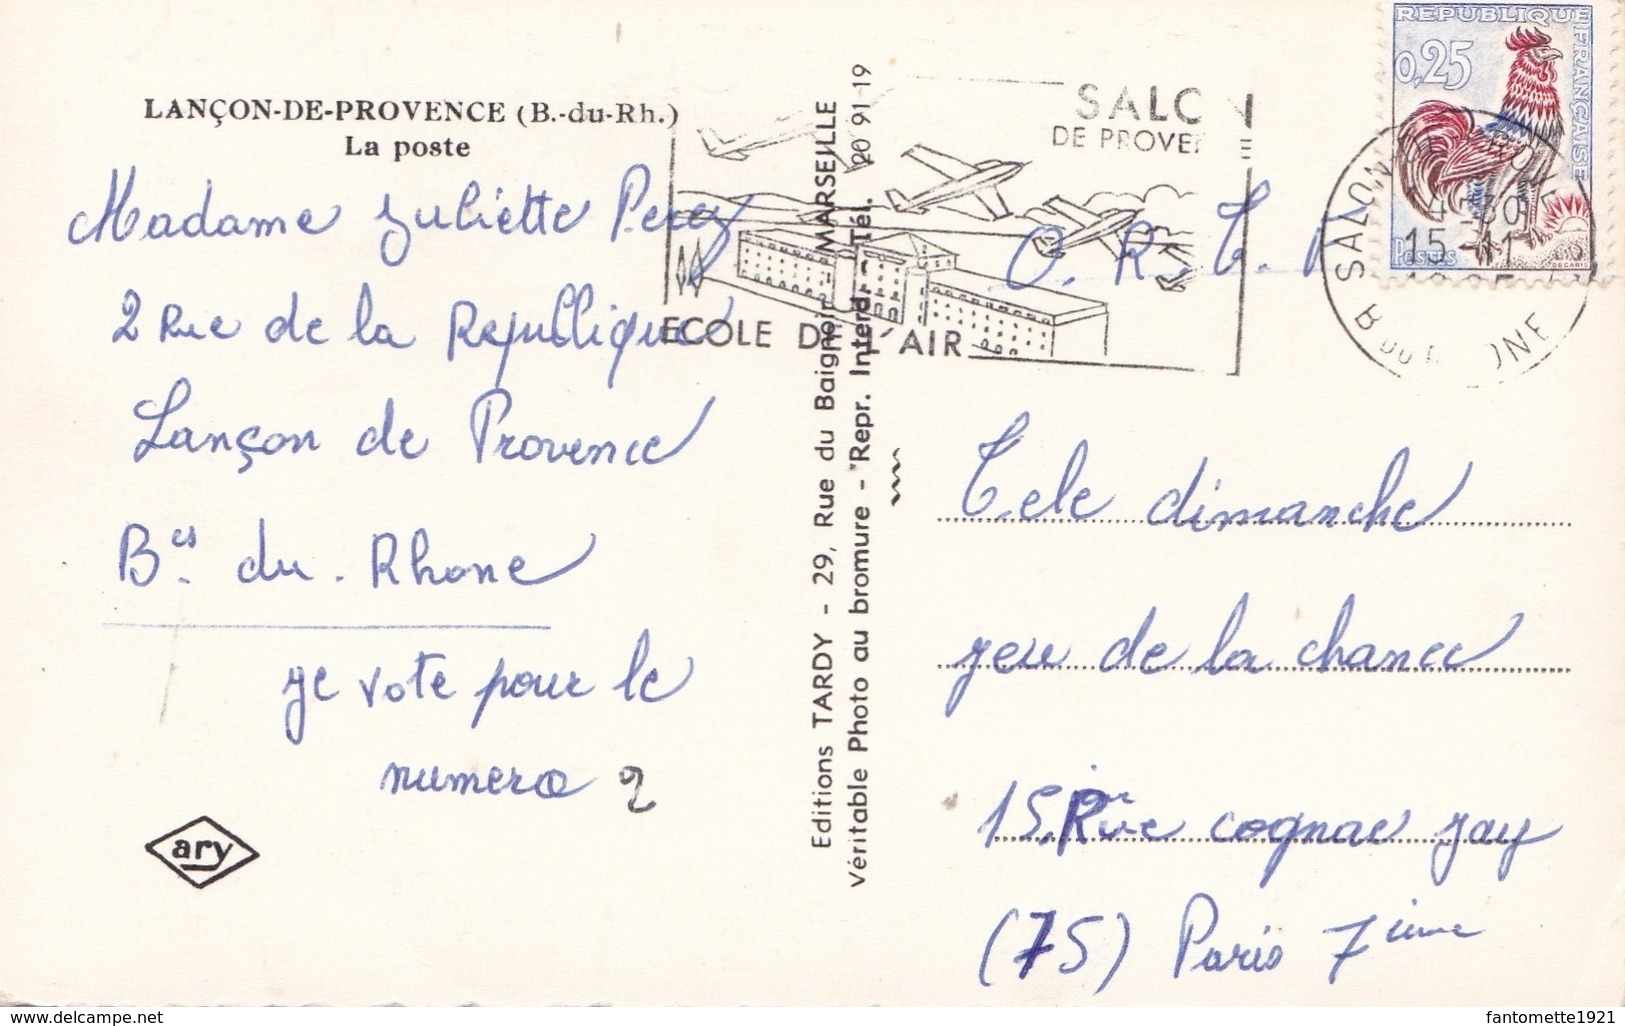 LANÇON-DE-PROVENCE (B.-du-Rh.)
La poste
Madame Juliette Perez
2 Rue de la Republique
Lançon de Provence
Bes. du. Rhone
je vote pour le
numero 2
ary
Editions TARDY - 29, Rue du Baignoir MARSEILLE
Véritable Photo au bromure - Repr. Interd. Tél. 20 91-19
SALON
DE PROVENCE
ECOLE DE L'AIR
REPUBLIQUE FRANÇAISE
0,25
Postes
DECARIS
SALON
15-11
B DU RHONE
O. R. T.
Tele dimanche
jeu de la chance
15 Rue cognac jay
(75) Paris 7ieme
www.delcampe.net
fantomette1921